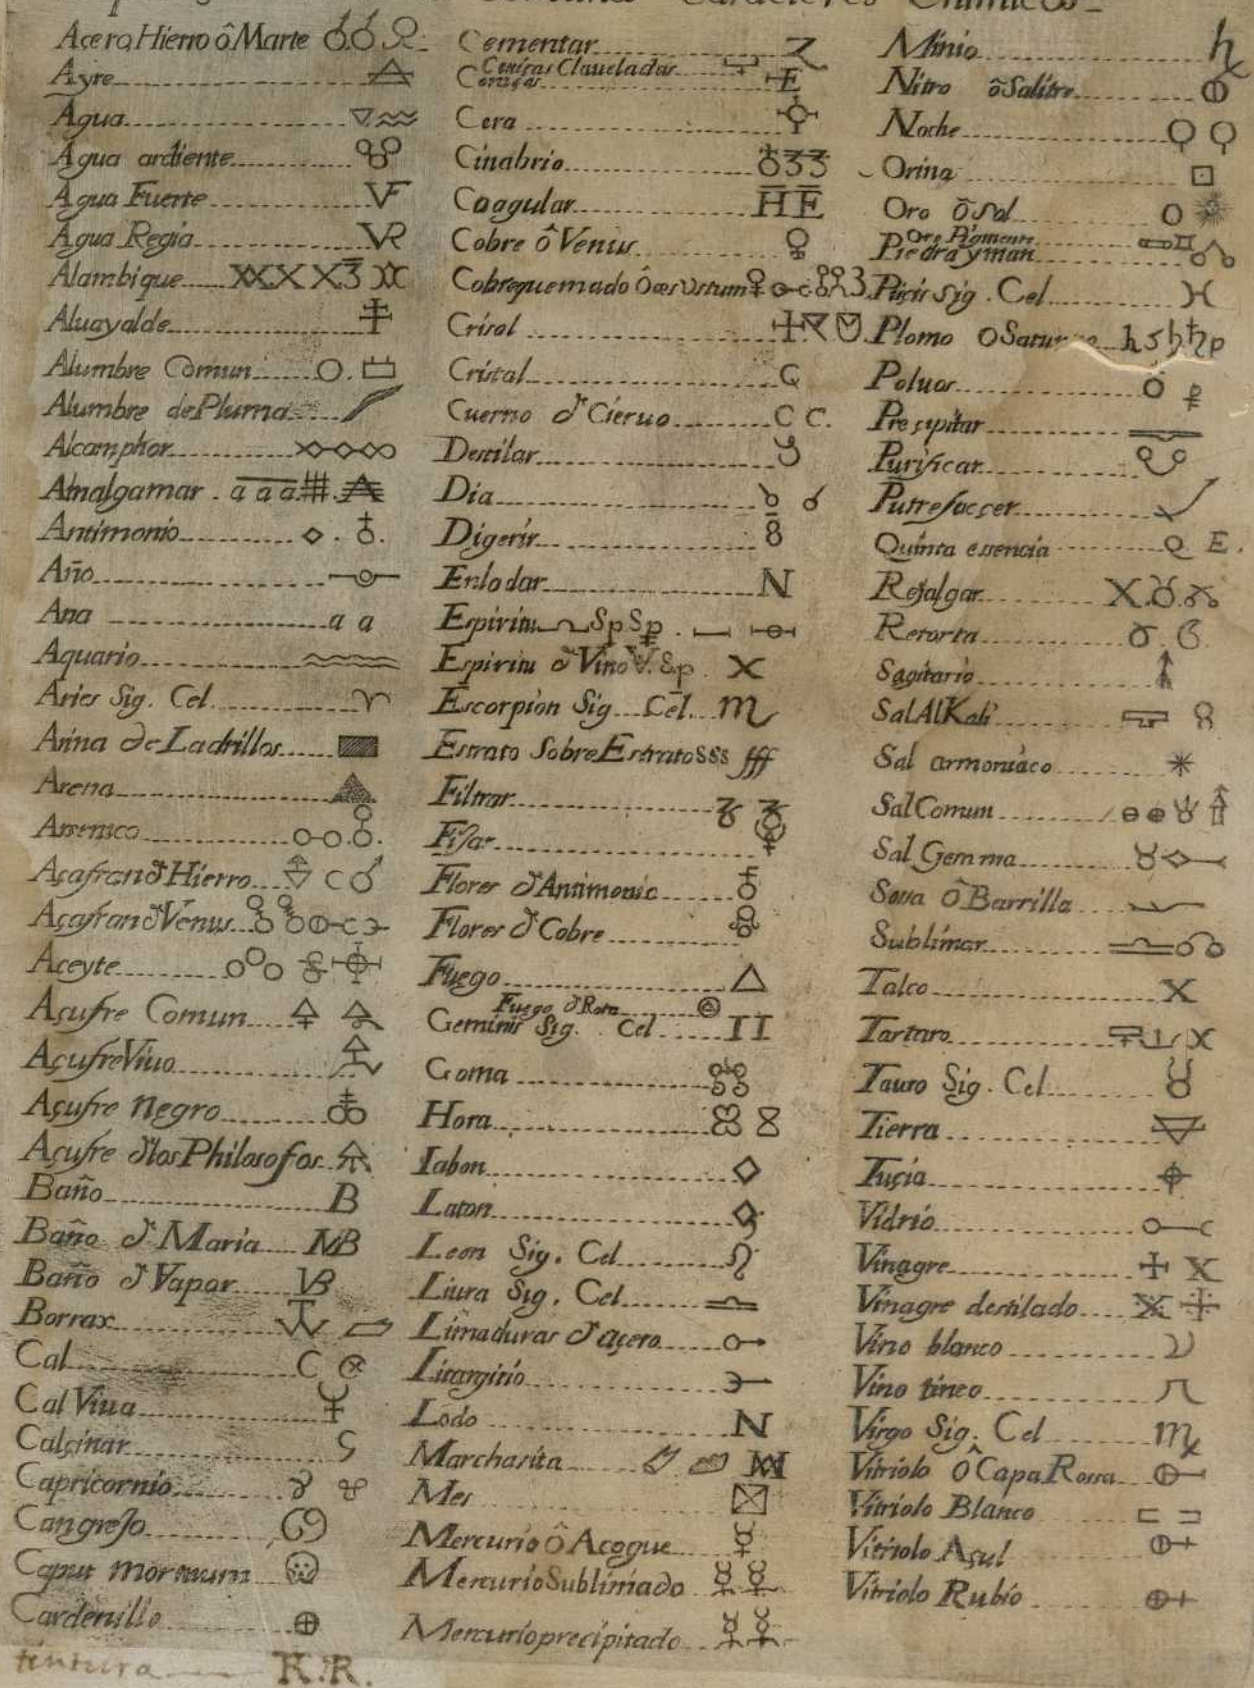 Caracteres Chimicos
Acero, Hierro ô Marte
Ayre
Agua
Agua ardiente
Agua Fuerte VF
Agua Regia VR
Alambique XXXX
Aluayalde
Alumbre Comun
Alumbre de Pluma
Alcamphor
Amalgamar a a a
Antimonio
Año
Ana a a
Aquario
Aries Sig. Cel.
Arina de Ladrillos
Arena
Arsenico
Açafran d Hierro
Açafran d Venus
Aceyte
Açufre Comun
Açufre Viuo
Açufre negro
Açufre dlos Philosofos
Baño B
Baño d Maria MB
Baño d Vapor VB
Borrax
Cal C
Cal Viua
Calçinar
Capricornio
Cangrejo
Caput mortuum
Cardenillo
tintura R. R.
Cementar
Cenizas Claueladas
Cenizas E
Cera
Cinabrio
Coagular H E
Cobre ô Venus
Cobre quemado ô æs Ustum
Crisol
Cristal C
Cuerno d Cieruo C C.
Destilar
Dia
Digerir
Enlodar N
Espiritu Sp Sp
Espiritu d Vino V. Sp. X
Escorpion Sig. Cel.
Estrato Sobre Estrato SSS fff
Filtrar
Fijar
Flores d Antimonio
Flores d Cobre
Fuego
Fuego d Rota
Geminis Sig. Cel II
Goma
Hora
Iabon
Laton
Leon Sig. Cel
Liura Sig. Cel
Limaduras d açero
Litargirio
Lodo N
Marchasita
Mes
Mercurio ô Açogue
Mercurio Sublimado
Mercurio precipitado
Minio
Nitro ô Salitre
Noche
Orina
Oro ô Sol
Oro Pigmento
Piedra yman
Piscis Sig. Cel
Plomo O Saturno
Poluos
Presipitar
Purificar
Putrefacçer
Quinta essencia Q E.
Rejalgar
Retorta
Sagitario
Sal AlKali
Sal armoniaco
Sal Comun
Sal Gemma
Sosa ô Barrilla
Sublimar
Talco X
Tartaro
Tauro Sig. Cel
Tierra
Tuçia
Vidrio
Vinagre
Vinagre destilado
Vino blanco
Vino tinto
Virgo Sig. Cel
Vitriolo ô Capa Rossa
Vitriolo Blanco
Vitriolo Açul
Vitriolo Rubio